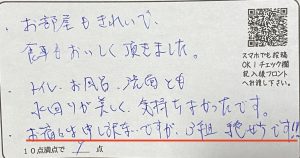 ・お部屋もきれいで、
食事もおいしく頂きました。
・トイレ・お風呂・洗面とも
水回りが美しく、気持ちよかったです。
・お宿らは申し訳ないですが、3組
10点満点で 点
スマホでも投稿
OK!チェック欄
記入後フロント
へお持ち下さい。